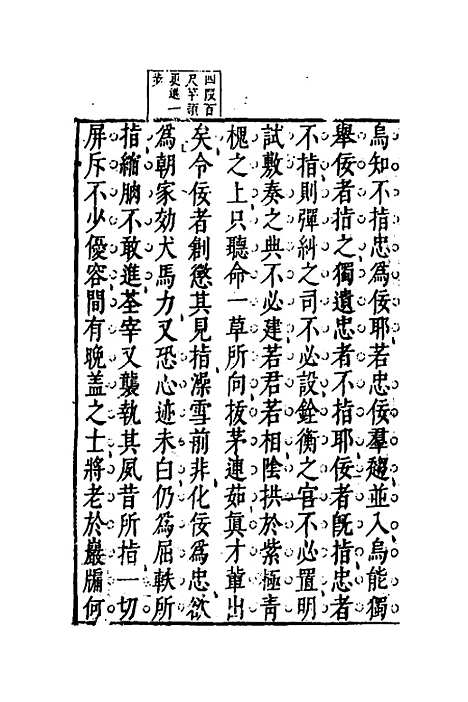 四段百
尺竿頭
更進一
步
烏知不指忠為佞耶若忠佞羣趨並入烏能獨
舉佞者指之獨遺忠者不指耶佞者旣指忠者
不指則彈糾之司不必設銓衡之官不必置明
試敷奏之典不必建若君若相陰拱於紫極青
槐之上只聽命一草所向拔茅連茹真才輩出
矣令佞者創懲其見指澡雪前非化佞為忠欲
為朝家効犬馬力又恐心迹未白仍為屈軼所
指縮朒不敢進荃宰又襲執其夙昔所指一切
屏斥不少優容間有晚盖之士將老於巖牖何